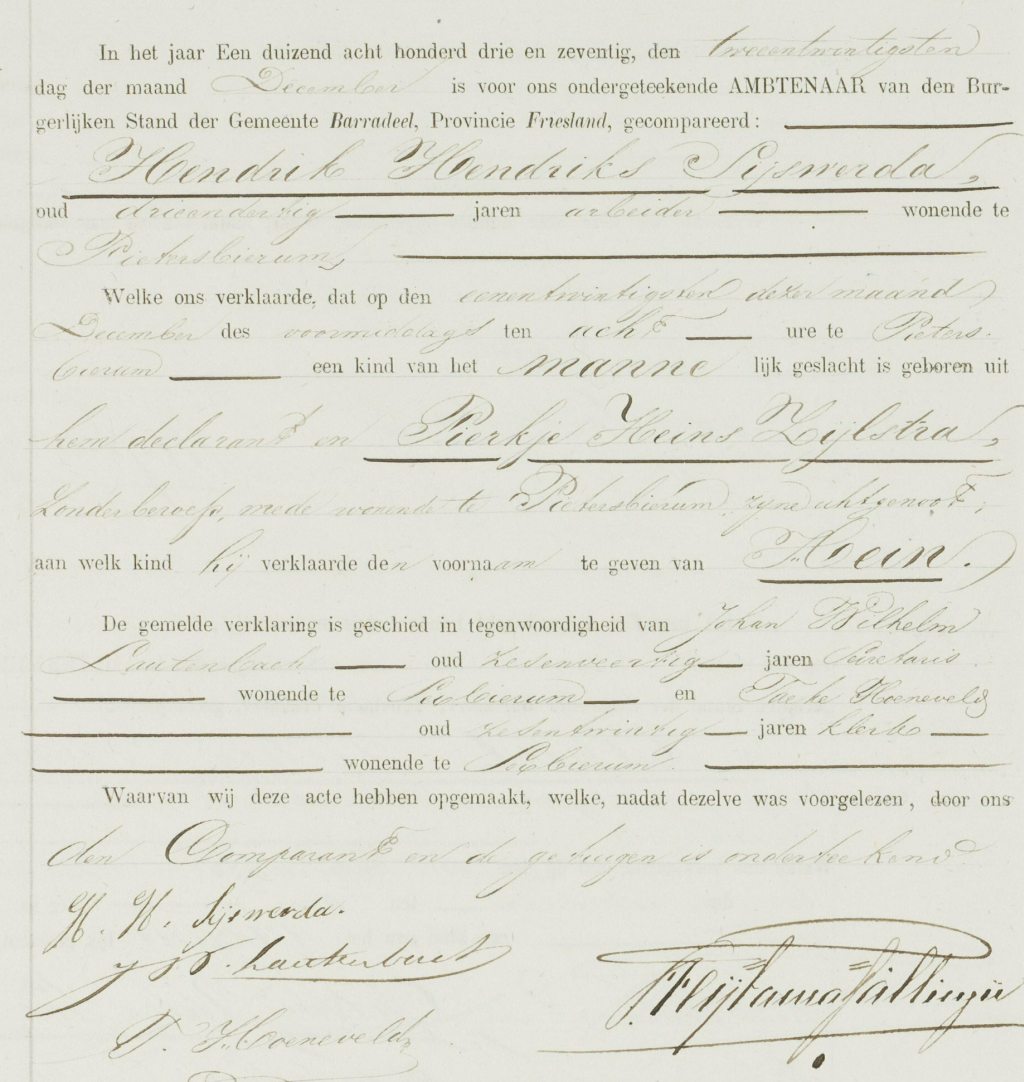 In het jaar Een duizend acht honderd drie en zeventig, den tweeentwintigsten
dag der maand December is voor ons ondergeteekende AMBTENAAR van den Bur-
gerlijken Stand der Gemeente Barradeel, Provincie Friesland, gecompareerd:
Hendrik Hendriks Sijswerda,
oud drieendertig jaren arbeider wonende te
Pietersbierum,
Welke ons verklaarde, dat op den eenentwintigsten dezer maand
December des voormiddags ten acht ure te Pieters-
bierum een kind van het manne lijk geslacht is geboren uit
hem declarant en Pierkje Heins Zijlstra,
zonder beroep, mede wonende te Pietersbierum, zijne echtgenoot,
aan welk kind hij verklaarde den voornaam te geven van Hein.
De gemelde verklaring is geschied in tegenwoordigheid van Johan Wilhelm
Lautenbach oud zesenveertig jaren Secretaris
wonende te Sexbierum en Taeke Hoeneveld
oud zesentwintig jaren klerk
wonende te Sexbierum.
Waarvan wij deze acte hebben opgemaakt, welke, nadat dezelve was voorgelezen, door ons
den Comparant en de getuigen is onderteekend.
H. H. Sijswerda.
J W. Lautenbach
T. Hoeneveld